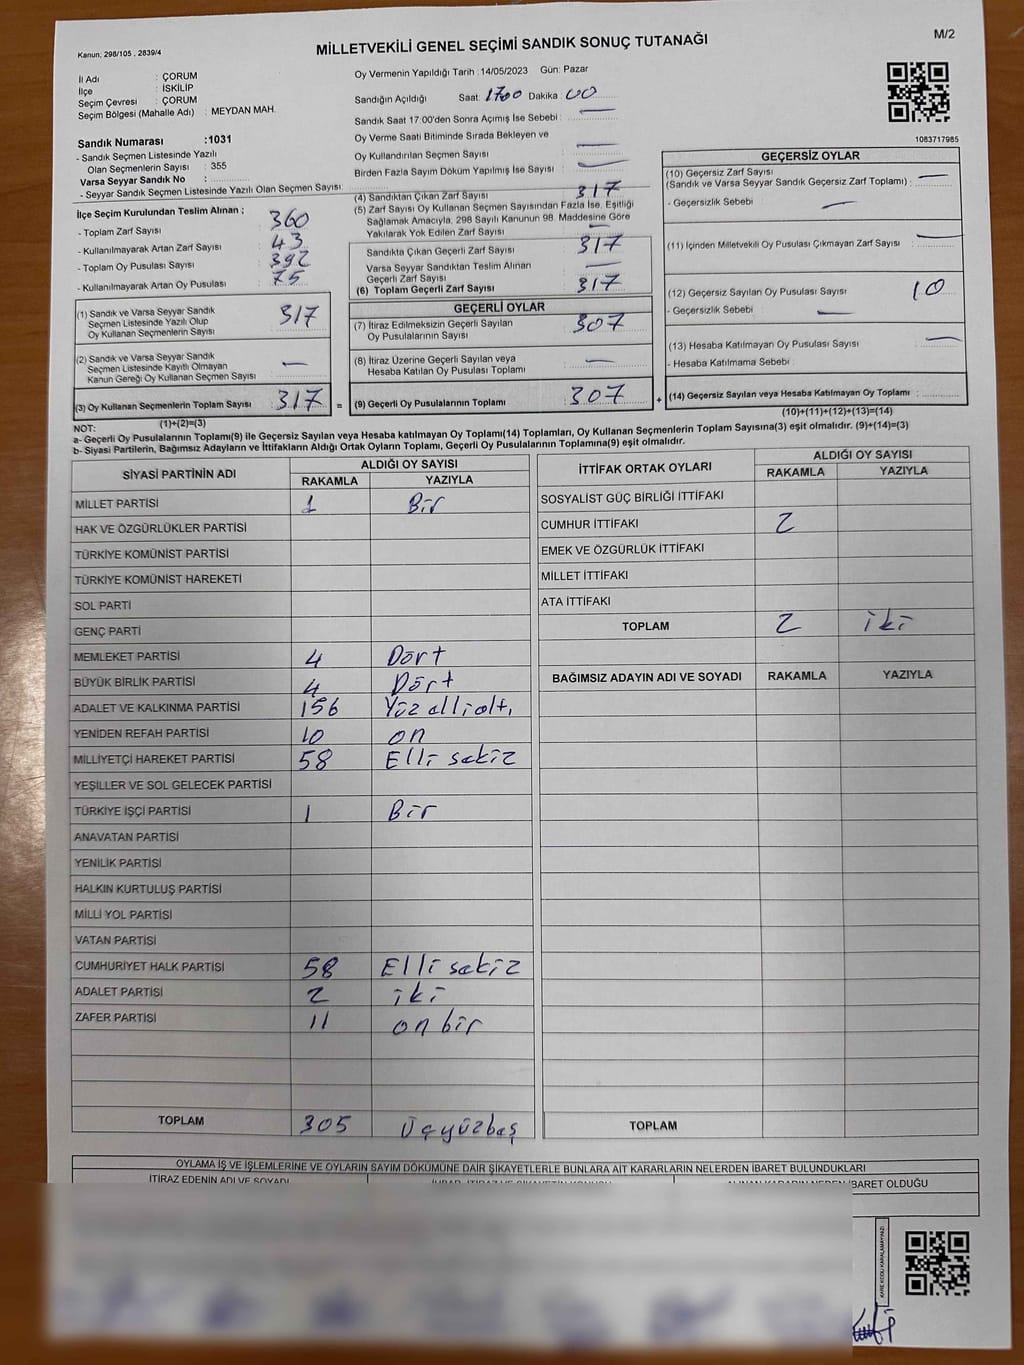 M/2
Kanun; 298/105 , 2839/4
MİLLETVEKİLİ GENEL SEÇİMİ SANDIK SONUÇ TUTANAĞI
İl Adı : ÇORUM
İlçe : İSKİLİP
Seçim Çevresi : ÇORUM
Seçim Bölgesi (Mahalle Adı) : MEYDAN MAH.
Sandık Numarası :1031
- Sandık Seçmen Listesinde Yazılı
Olan Seçmenlerin Sayısı : 355
Varsa Seyyar Sandık No :
- Seyyar Sandık Seçmen Listesinde Yazılı Olan Seçmen Sayısı:
İlçe Seçim Kurulundan Teslim Alınan ;
- Toplam Zarf Sayısı : 360
- Kullanılmayarak Artan Zarf Sayısı : 43
- Toplam Oy Pusulası Sayısı : 392
- Kullanılmayarak Artan Oy Pusulası : 75
(1) Sandık ve Varsa Seyyar Sandık
Seçmen Listesinde Yazılı Olup
Oy Kullanan Seçmenlerin Sayısı : 317
(2) Sandık ve Varsa Seyyar Sandık
Seçmen Listesinde Kayıtlı Olmayan
Kanun Gereği Oy Kullanan Seçmen Sayısı : —
(3) Oy Kullanan Seçmenlerin Toplam Sayısı : 317
(1)+(2)=(3)
Oy Vermenin Yapıldığı Tarih :14/05/2023 Gün: Pazar
Sandığın Açıldığı Saat: 1700 Dakika 00
Sandık Saat 17:00'den Sonra Açımış İse Sebebi : —
Oy Verme Saati Bitiminde Sırada Bekleyen ve
Oy Kullandırılan Seçmen Sayısı : —
Birden Fazla Sayım Döküm Yapılmış İse Sayısı : —
(4) Sandıktan Çıkan Zarf Sayısı : 317
(5) Zarf Sayısı Oy Kullanan Seçmen Sayısından Fazla İse, Eşitliği
Sağlamak Amacıyla, 298 Sayılı Kanunun 98. Maddesine Göre
Yakılarak Yok Edilen Zarf Sayısı :
Sandıkta Çıkan Geçerli Zarf Sayısı : 317
Varsa Seyyar Sandıktan Teslim Alınan
Geçerli Zarf Sayısı : —
(6) Toplam Geçerli Zarf Sayısı : 317
GEÇERLİ OYLAR
(7) İtiraz Edilmeksizin Geçerli Sayılan
Oy Pusulalarının Sayısı : 307
(8) İtiraz Üzerine Geçerli Sayılan veya
Hesaba Katılan Oy Pusulası Toplamı : —
= (9) Geçerli Oy Pusulalarının Toplamı : 307
1083717985
GEÇERSİZ OYLAR
(10) Geçersiz Zarf Sayısı
(Sandık ve Varsa Seyyar Sandık Geçersiz Zarf Toplamı) : —
- Geçersizlik Sebebi : —
(11) İçinden Milletvekili Oy Pusulası Çıkmayan Zarf Sayısı : —
(12) Geçersiz Sayılan Oy Pusulası Sayısı : 10
- Geçersizlik Sebebi : —
(13) Hesaba Katılmayan Oy Pusulası Sayısı : —
- Hesaba Katılmama Sebebi :
+ (14) Geçersiz Sayılan veya Hesaba Katılmayan Oy Toplamı :
(10)+(11)+(12)+(13)=(14)
NOT:
a- Geçerli Oy Pusulalarının Toplamı(9) ile Geçersiz Sayılan veya Hesaba katılmayan Oy Toplamı(14) Toplamları, Oy Kullanan Seçmenlerin Toplam Sayısına(3) eşit olmalıdır. (9)+(14)=(3)
b- Siyasi Partilerin, Bağımsız Adayların ve İttifakların Aldığı Ortak Oyların Toplamı, Geçerli Oy Pusulalarının Toplamına(9) eşit olmalıdır.
SİYASİ PARTİNİN ADI ALDIĞI OY SAYISI
RAKAMLA YAZIYLA
MİLLET PARTİSİ 1 Bir
HAK VE ÖZGÜRLÜKLER PARTİSİ
TÜRKİYE KOMÜNİST PARTİSİ
TÜRKİYE KOMÜNİST HAREKETİ
SOL PARTİ
GENÇ PARTİ
MEMLEKET PARTİSİ 4 Dört
BÜYÜK BİRLİK PARTİSİ 4 Dört
ADALET VE KALKINMA PARTİSİ 156 Yüz elli altı
YENİDEN REFAH PARTİSİ 10 on
MİLLİYETÇİ HAREKET PARTİSİ 58 Elli sekiz
YEŞİLLER VE SOL GELECEK PARTİSİ
TÜRKİYE İŞÇİ PARTİSİ 1 Bir
ANAVATAN PARTİSİ
YENİLİK PARTİSİ
HALKIN KURTULUŞ PARTİSİ
MİLLİ YOL PARTİSİ
VATAN PARTİSİ
CUMHURİYET HALK PARTİSİ 58 Elli sekiz
ADALET PARTİSİ 2 iki
ZAFER PARTİSİ 11 on bir
TOPLAM 305 üçyüzbeş
İTTİFAK ORTAK OYLARI ALDIĞI OY SAYISI
RAKAMLA YAZIYLA
SOSYALİST GÜÇ BİRLİĞİ İTTİFAKI
CUMHUR İTTİFAKI 2
EMEK VE ÖZGÜRLÜK İTTİFAKI
MİLLET İTTİFAKI
ATA İTTİFAKI
TOPLAM 2 iki
BAĞIMSIZ ADAYIN ADI VE SOYADI RAKAMLA YAZIYLA
TOPLAM
OYLAMA İŞ VE İŞLEMLERİNE VE OYLARIN SAYIM DÖKÜMÜNE DAİR ŞİKAYETLERLE BUNLARA AİT KARARLARIN NELERDEN İBARET BULUNDUKLARI
İTİRAZ EDENİN ADI VE SOYADI
İBARET OLDUĞU